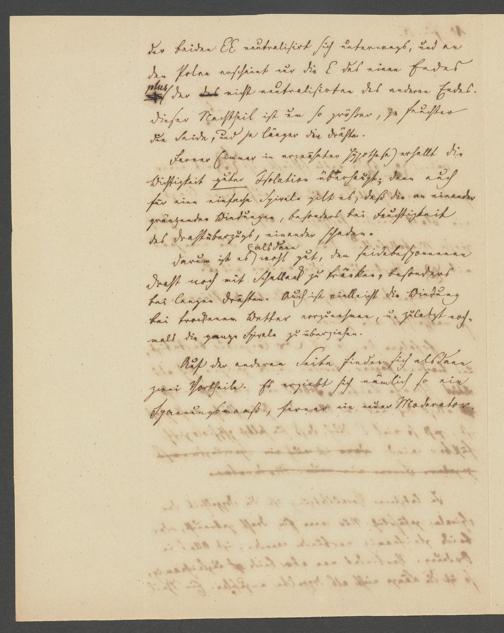 der beiden EE neutralisirt sich unterwegs, und an
den Polen erscheint nur die E des einen Endes
plus der des nicht neutralisirten des anderen Endes.
Dieser Nachtheil ist um so größer, je feuchter
die Seide, und je länger die Drähte.
Ferner (immer in erwähnter Hypothese) erhellt die
Wichtigkeit guter Isolation überhaupt; denn auch
für eine einfache Spirale gilt es, daß die an einander
gränzenden Windungen, besonders bei Feuchtigkeit
des Drahtüberzugs, einander schaden.
Darum ist es alsdann wohl gut, den seidebesponnenen
Draht noch mit Schellack zu tränken, besonders
bei langen Drähten. Auch ist vielleicht die Windung
bei trockenem Wetter vorzunehmen, u. zuletzt noch-
mals die ganze Spirale zu überziehen.
Auf der anderen Seite finden sich alsdann
zwei Vortheile. Es ergiebt sich nämlich so ein
Spannungsmaaß, ferner ein neuer Moderator